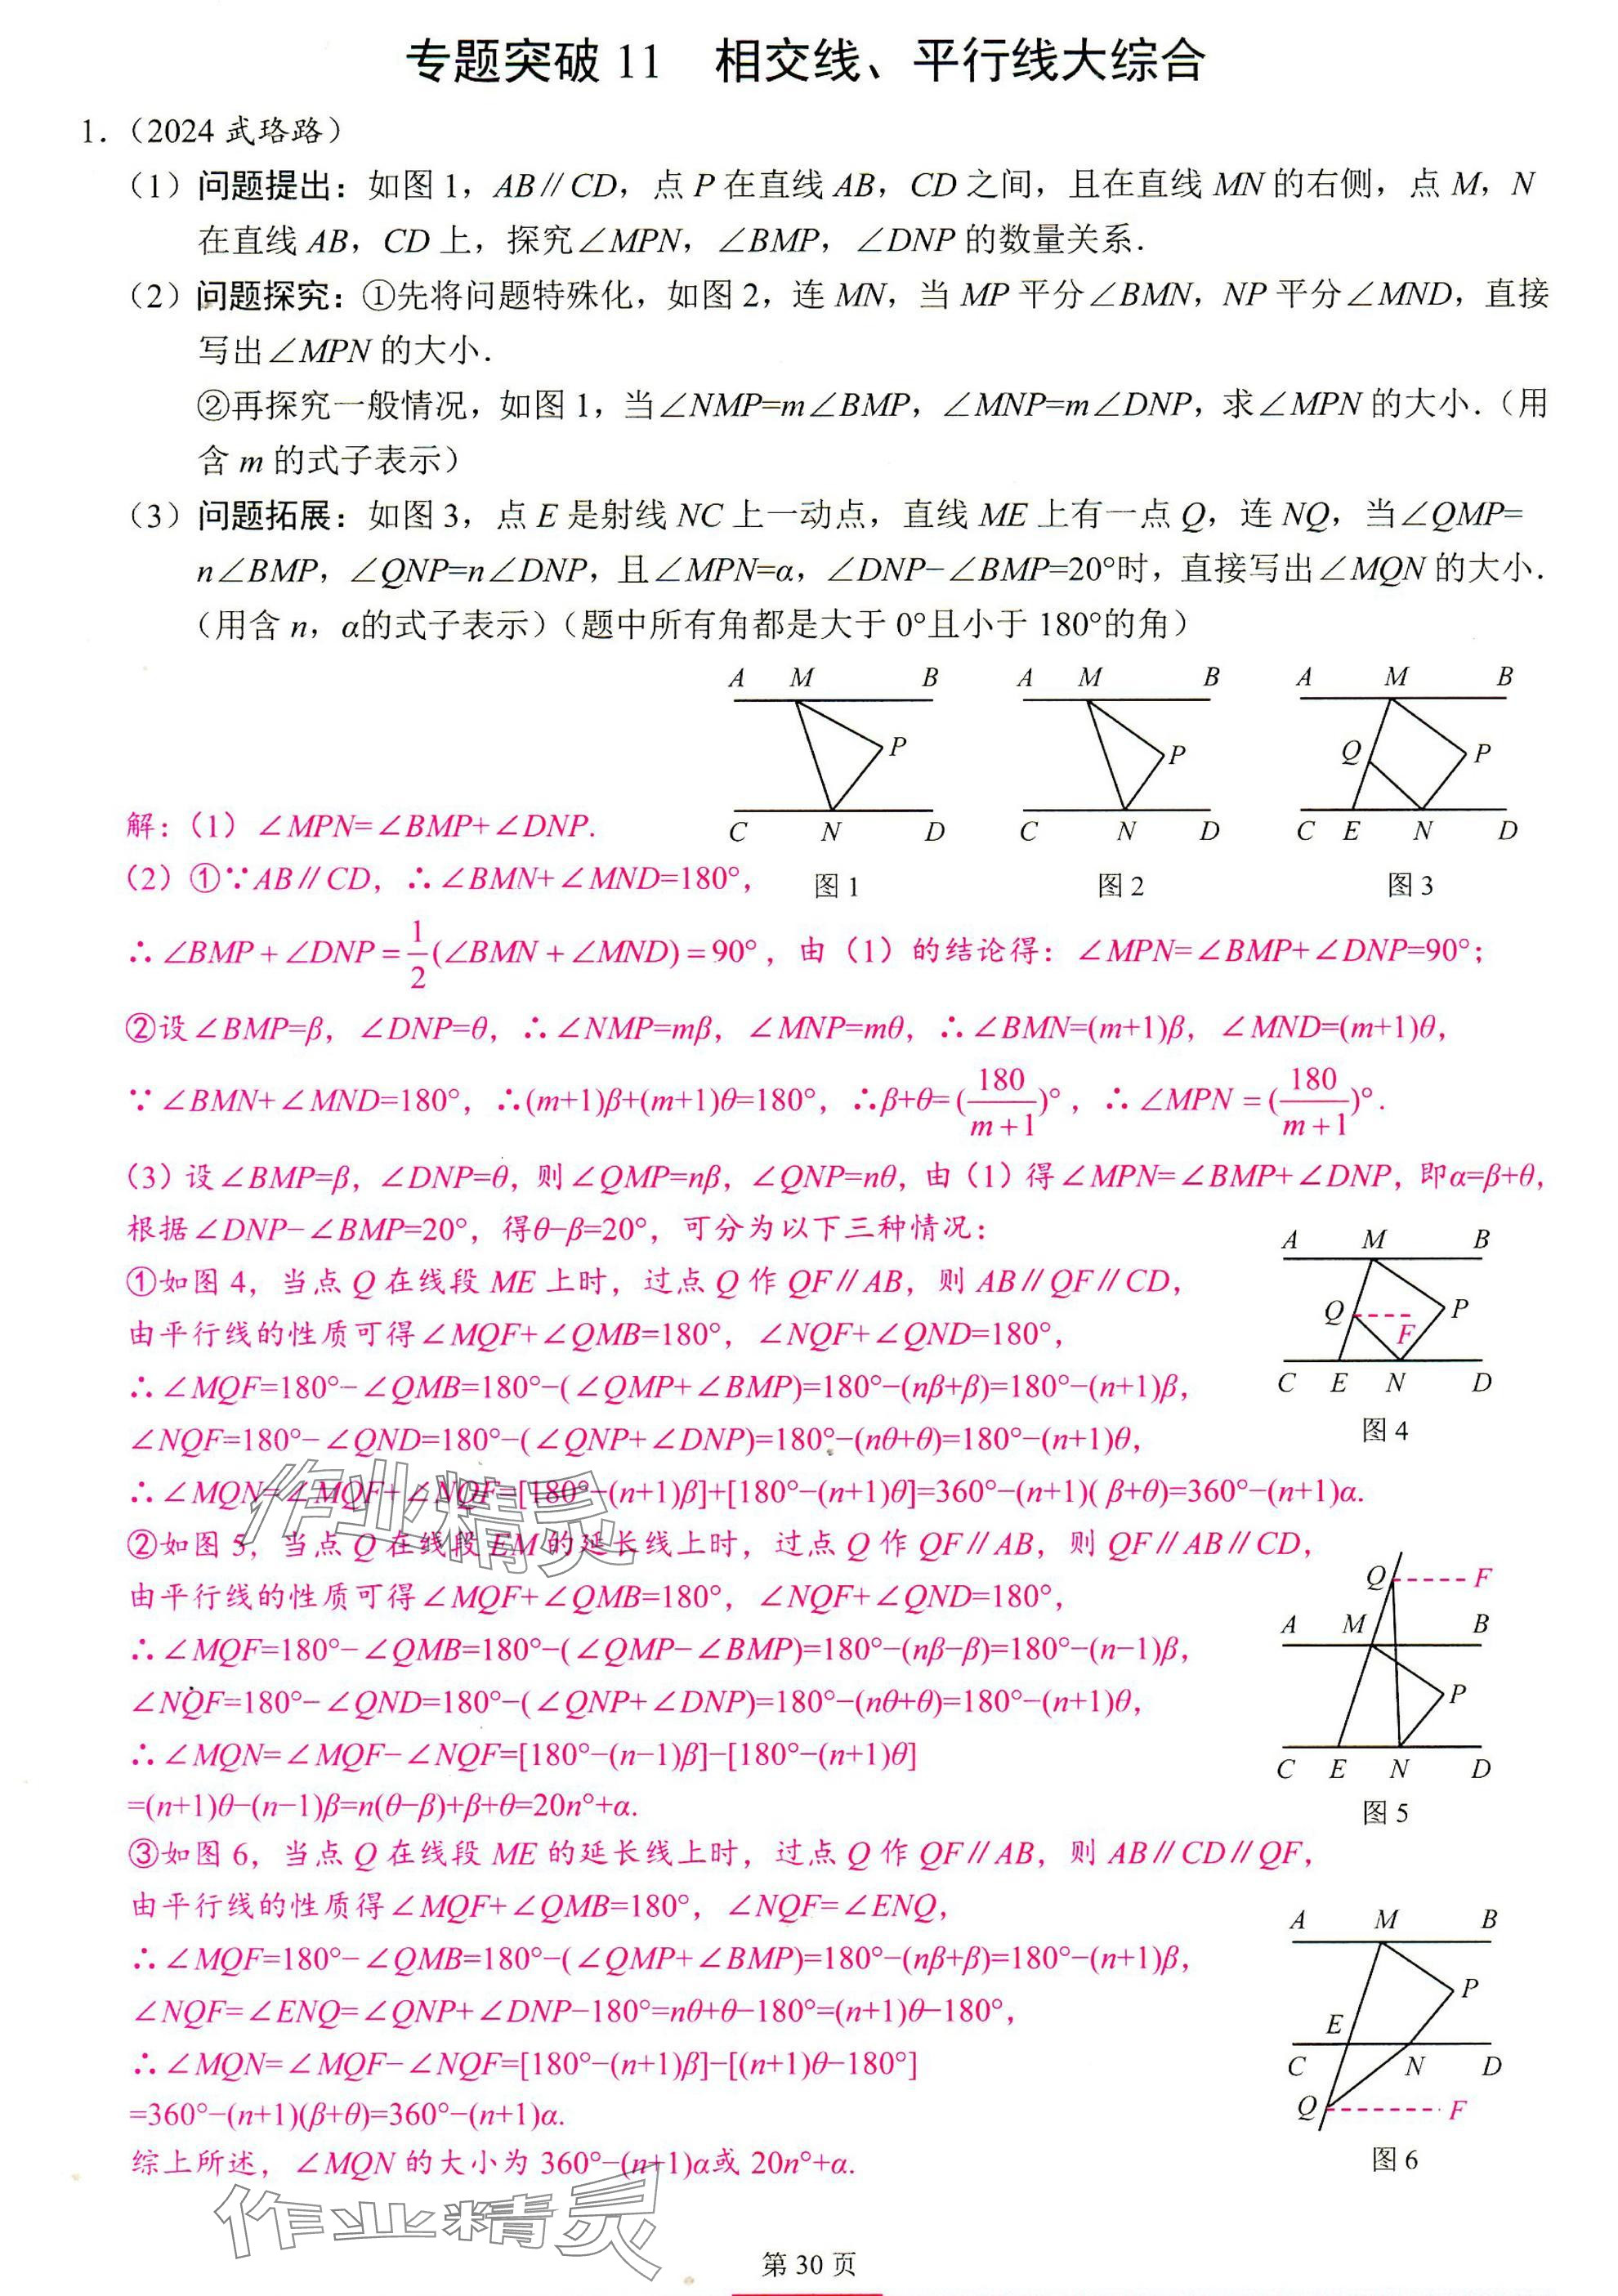 专题突破 11　相交线、平行线大综合
1.（2024 武珞路）
（1）问题提出：如图 1，AB∥CD，点 P 在直线 AB，CD 之间，且在直线 MN 的右侧，点 M，N
在直线 AB，CD 上，探究∠MPN，∠BMP，∠DNP 的数量关系.
（2）问题探究：①先将问题特殊化，如图 2，连 MN，当 MP 平分∠BMN，NP 平分∠MND，直接
写出∠MPN 的大小.
②再探究一般情况，如图 1，当∠NMP=m∠BMP，∠MNP=m∠DNP，求∠MPN 的大小.（用
含 m 的式子表示）
（3）问题拓展：如图 3，点 E 是射线 NC 上一动点，直线 ME 上有一点 Q，连 NQ，当∠QMP=
n∠BMP，∠QNP=n∠DNP，且∠MPN=α，∠DNP−∠BMP=20°时，直接写出∠MQN 的大小.
（用含 n，α的式子表示）（题中所有角都是大于 0°且小于 180°的角）
A M B
P
C N D
图 1
A M B
P
C N D
图 2
A M B
Q P
C E N D
图 3
解：（1）∠MPN=∠BMP+∠DNP.
（2）①∵AB∥CD，∴∠BMN+∠MND=180°，
∴∠BMP+∠DNP=1/2(∠BMN+∠MND)=90°，由（1）的结论得：∠MPN=∠BMP+∠DNP=90°；
②设∠BMP=β，∠DNP=θ，∴∠NMP=mβ，∠MNP=mθ，∴∠BMN=(m+1)β，∠MND=(m+1)θ，
∵∠BMN+∠MND=180°，∴(m+1)β+(m+1)θ=180°，∴β+θ=(180/(m+1))°，∴∠MPN=(180/(m+1))°.
（3）设∠BMP=β，∠DNP=θ，则∠QMP=nβ，∠QNP=nθ，由（1）得∠MPN=∠BMP+∠DNP，即α=β+θ，
根据∠DNP−∠BMP=20°，得θ−β=20°，可分为以下三种情况：
①如图 4，当点 Q 在线段 ME 上时，过点 Q 作 QF∥AB，则 AB∥QF∥CD，
由平行线的性质可得∠MQF+∠QMB=180°，∠NQF+∠QND=180°，
∴∠MQF=180°−∠QMB=180°−(∠QMP+∠BMP)=180°−(nβ+β)=180°−(n+1)β，
∠NQF=180°−∠QND=180°−(∠QNP+∠DNP)=180°−(nθ+θ)=180°−(n+1)θ，
∴∠MQN=∠MQF+∠NQF=[180°−(n+1)β]+[180°−(n+1)θ]=360°−(n+1)(β+θ)=360°−(n+1)α.
A M B
Q P
F
C E N D
图 4
②如图 5，当点 Q 在线段 EM 的延长线上时，过点 Q 作 QF∥AB，则 QF∥AB∥CD，
由平行线的性质可得∠MQF+∠QMB=180°，∠NQF+∠QND=180°，
∴∠MQF=180°−∠QMB=180°−(∠QMP−∠BMP)=180°−(nβ−β)=180°−(n−1)β，
∠NQF=180°−∠QND=180°−(∠QNP+∠DNP)=180°−(nθ+θ)=180°−(n+1)θ，
∴∠MQN=∠MQF−∠NQF=[180°−(n−1)β]−[180°−(n+1)θ]
=(n+1)θ−(n−1)β=n(θ−β)+β+θ=20n°+α.
Q F
A M B
P
C E N D
图 5
③如图 6，当点 Q 在线段 ME 的延长线上时，过点 Q 作 QF∥AB，则 AB∥CD∥QF，
由平行线的性质得∠MQF+∠QMB=180°，∠NQF=∠ENQ，
∴∠MQF=180°−∠QMB=180°−(∠QMP+∠BMP)=180°−(nβ+β)=180°−(n+1)β，
∠NQF=∠ENQ=∠QNP+∠DNP−180°=nθ+θ−180°=(n+1)θ−180°，
∴∠MQN=∠MQF−∠NQF=[180°−(n+1)β]−[(n+1)θ−180°]
=360°−(n+1)(β+θ)=360°−(n+1)α.
综上所述，∠MQN 的大小为 360°−(n+1)α或 20n°+α.
A M B
P
E
C N D
Q F
图 6
作业精灵
作业精灵
第 30 页